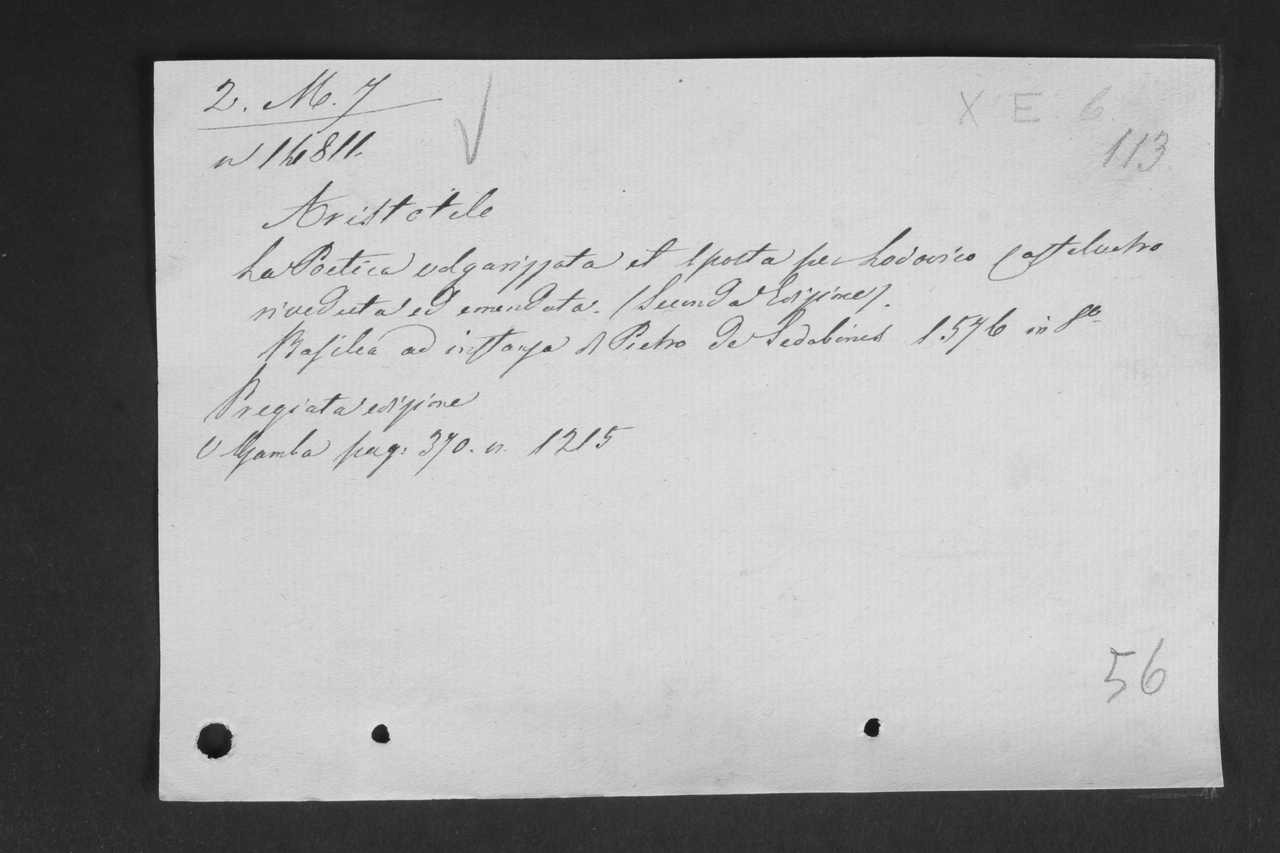 2. M. 7
X E. 6.
n 16811.
113
Aristotele
La Poetica volgarizzata et sposta per Lodovico Castelvetro
riveduta ed emendata. (Seconda Edizione).
Basilea ad instanza di Pietro De Sedabonis 1576 in 8º
Pregiata edizione
V Gamba pag: 370. n. 1215
56